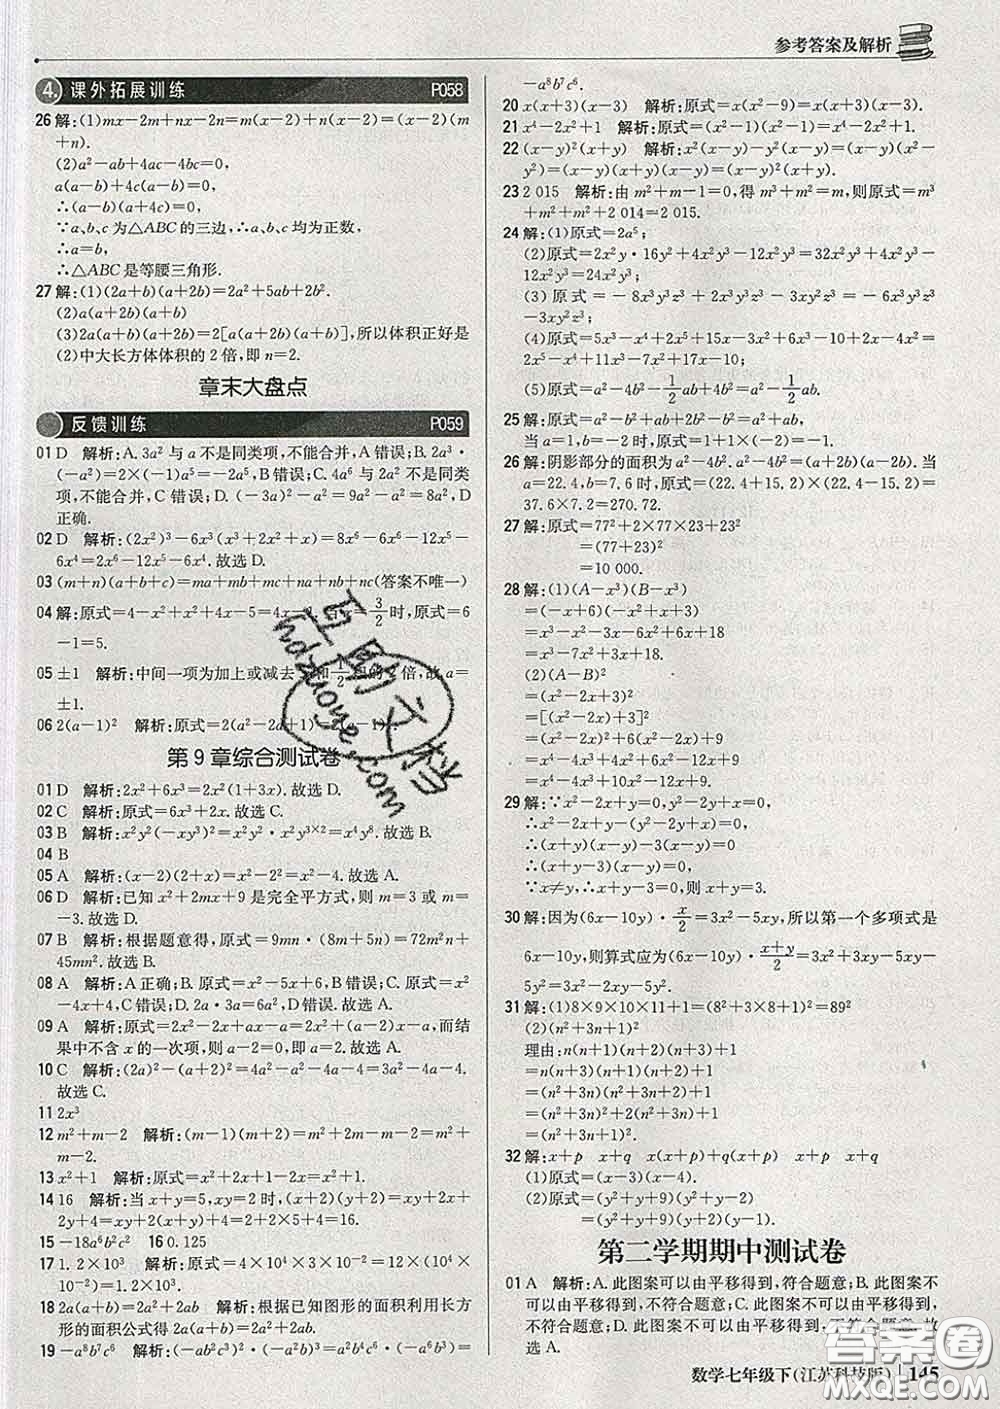 参考答案及解析
4. 课外拓展训练 P058
26 解:(1)mx-2m+nx-2n=m(x-2)+n(x-2)=(x-2)(m
+n).
(2)a²-ab+4ac-4bc=0,
a(a-b)+4c(a-b)=0,
∴(a-b)(a+4c)=0,
∵a、b、c为△ABC的三边,∴a、b、c均为正数,
∴a=b,
∴△ABC是等腰三角形.
27 解:(1)(2a+b)(a+2b)=2a²+5ab+2b².
(2)a(a+2b)(a+b)
(3)2a(a+b)(a+2b)=2[a(a+2b)(a+b)],所以体积正好是
(2)中大长方体体积的2倍,即n=2.
章末大盘点
反馈训练 P059
01 D 解析:A.3a²与a不是同类项,不能合并,A错误;B.2a³·
(-a²)=2×(-1)a⁵=-2a⁵,B错误;C.4a⁶与2a²不是同类
项,不能合并,C错误;D.(-3a)²-a²=9a²-a²=8a²,D
正确.
02 D 解析:(2x²)³-6x³(x³+2x²+x)=8x⁶-6x⁶-12x⁵-
6x⁴=2x⁶-12x⁵-6x⁴.故选D.
03 (m+n)(a+b+c)=ma+mb+mc+na+nb+nc(答案不唯一)
04 解:原式=4-x²+x²+4x-5=4x- 3/2时,原式=6
-1=5.
05 ±1 解析:中间一项为加上或减去 和1/2 的2倍,故a=
±1.
06 2(a-1)² 解析:原式=2(a²-2a+1)
第9章综合测试卷
01 D 解析:2x²+6x³=2x²(1+3x).故选D.
02 C 解析:原式=6x³+2x.故选C.
03 B 解析:x²y²(-xy³)²=x²y²·x²y³ˣ²=x⁴y⁸.故选B.
04 B
05 A 解析:(x-2)(2+x)=x²-2²=x²-4.故选A.
06 D 解析:已知x²+2mx+9是完全平方式,则m=3或m=
-3.故选D.
07 B 解析:根据题意得,原式=9mn·(8m+5n)=72m²n+
45mn².故选B.
08 A 解析:A正确;B.原式=x²-5x+6,B错误;C.原式=x²
-4x-4,C错误;D.2a·3a=6a²,D错误.故选A.
09 A 解析:原式=2x²-2x+ax-a=2x²+(a-2)x-a,而结
果中不含x的一次项,则a-2=0,即a=2.故选A.
10 C 解析:(2a)²-(a+2)²=4a²-a²-4a-4=3a²-4a-4.
故选C.
11 2x³
12 m²+m-2 解析:(m-1)(m+2)=m²+2m-m-2=m²+m
-2.
13 x²+1 解析:原式=x²+2x+1-2x=x²+1.
14 16 解析:当x+y=5,xy=2时,(x+2)(y+2)=xy+2x+
2y+4=xy+2(x+y)+4=2+2×5+4=16.
15 -18a⁶b²c² 16 0.125
17 1.2×10³ 解析:原式=24×10⁴×10⁴×10⁴÷(2×
10¹⁰)=1.2×10³.
18 2a(a+b)=2a²+2ab 解析:根据已知图形的面积利用长方
形的面积公式得2a(a+b)=2a²+2ab.
19 -a⁸b⁷c⁶ 解析:(-ab²c³)²·(-a²b)³=a²b⁴c⁶·(-a⁶b³)=
-a⁸b⁷c⁶.
20 x(x+3)(x-3) 解析:原式=x(x²-9)=x(x+3)(x-3).
21 x⁴-2x²+1 解析:原式=(x²-1)(x²-1)=x⁴-2x²+1.
22 (x-y)²(x+y) 解析:x²(x-y)-y²(x-y)=(x-y)(x²-
y²)=(x-y)(x+y)(x-y)=(x-y)²(x+y).
23 2 015 解析:由m²+m-1=0,得m³+m²=m,则原式=m³
+m²+m²+2 014=2 015.
24 解:(1)原式=2a⁵;
(2)原式=2x²y·16y²+4x²·4xy³-12x²y³=32x²y³+4x²y³-
12x²y³=24x²y³;
(3)原式=-8x³y³z³+2x³y³z³-3xy²z³=-6x³y³z³
-3xy²z³;
(4)原式=5x³-x⁴+2x⁵+15x-3x²+6x³-10+2x-4x²=
2x⁵-x⁴+11x³-7x²+17x-10;
(5)原式=a²-4b²-1/2ab+4b²=a²-1/2ab.
25 解:原式=a²-b²+ab+2b²-b²=a²+ab,
当a=1,b=-2时,原式=1+1×(-2)=-1.
26 解:阴影部分的面积为a²-4b².a²-4b²=(a+2b)(a-2b).当
a=22.4,b=7.6时,原式=(22.4+15.2)×(22.4-15.2)=
37.6×7.2=270.72.
27 解:原式=77²+2×77×23+23²
=(77+23)²
=10 000.
28 解:(1)(A-x³)(B-x³)
=(-x+6)(-x²+x+3)
=x³-x²-3x-6x²+6x+18
=x³-7x²+3x+18
(2)(A-B)²
=(x²-2x+3)²
=[(x²-2x)+3]²
=(x²-2x)²+6(x²-2x)+9
=x⁴-4x³+4x²+6x²-12x+9
=x⁴-4x³+10x²-12x+9
29 解:∵x²-2x+y=0,y²-2y+x=0,
∴x²-2x-y²+2y+y-x=0,
∴(x+y)(x-y)-3(x-y)=0
∴(x+y-3)(x-y)=0,
∵x≠y,∴x+y-3=0,则x+y=3.
30 解:因为(6x-10y)·x/2=3x²-5xy,所以第一个多项式是
6x-10y,则算式应为(6x-10y)·(x+y)/2=3x²+3xy-5xy-
5y²=3x²-2xy-5y².
31 解:(1)8×9×10×11+1=(8²+3×8+1)²=89²
(2)(n²+3n+1)²
理由:n(n+1)(n+2)(n+3)+1
=n(n+3)(n+1)(n+2)+1
=(n²+3n)(n²+3n+2)+1
=(n²+3n)²+2(n²+3n)+1
=(n²+3n+1)².
32 解:x+p x+q x(x+p)+q(x+p) x+p x+q
(1)原式=(x-3)(x-4).
(2)原式=(y²+y+9)(y²+y-2)
=(y²+y+9)(y+2)(y-1).
第二学期期中测试卷
01 A 解析:A.此图案可以由平移得到,符合题意;B.此图案不
可以由平移得到,不符合题意;C.此图案不可以由平移得到,
不符合题意;D.此图案不可以由平移得到,不符合题意.故
选A.
数学七年级下(江苏科技版) 145
答案圈
MXQE.COM
互助文档
hdzuoye.com